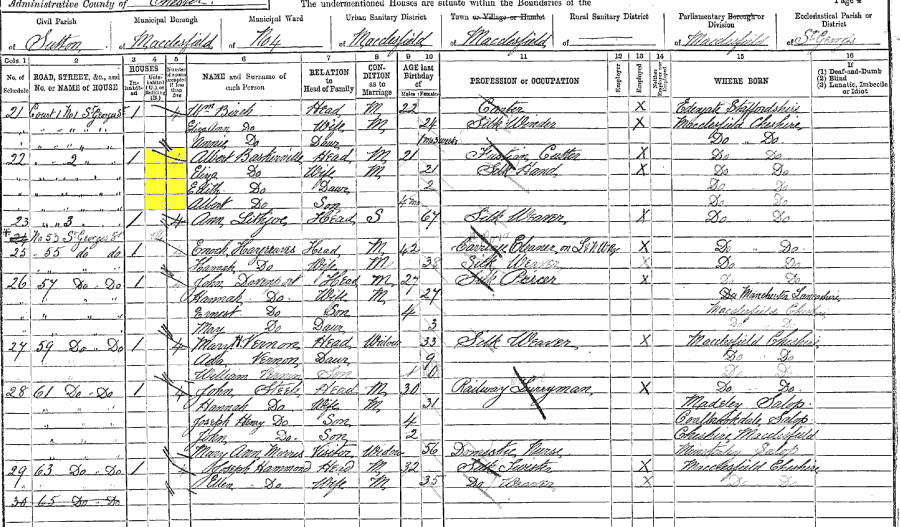 Administrative County of Chester
The undermentioned Houses are situate within the Boundaries of the
Page 4
Civil Parish
of Sutton
Municipal Borough
of Macclesfield
Municipal Ward
of No 4
Urban Sanitary District
of Macclesfield
Town or Village or Hamlet
of Macclesfield
Rural Sanitary District
of
Parliamentary Borough or Division
of Macclesfield
Ecclesiastical Parish or District
of St Georges
Cols. 1 2 3 4 5 6 7 8 9 10 11 12 13 14 15 16
No. of Schedule
ROAD, STREET, &c., and No. or NAME of HOUSE
HOUSES
Inhabited
Uninhabited (U.), or Building (B.)
Number of rooms occupied if less than five
NAME and Surname of each Person
RELATION to Head of Family
CONDITION as to Marriage
AGE last Birthday of
Males Females
PROFESSION or OCCUPATION
Employer
Employed
Neither
WHERE BORN
If
(1) Deaf-and-Dumb
(2) Blind
(3) Lunatic, Imbecile or Idiot
21 Court 1 No 1 St Georges St 1 4 Wm Birch Head M 22 Carter X Staffordshire
Do Wife M 24 Silk Winder X Macclesfield Cheshire
Annie Do Daur Do Do
22 2 1 Albert Baskerville Head M 21 Fustian Cutter X Do Do
Eliza Do Wife M 21 Silk Hand X Do Do
Edith Do Daur 2 Do Do
Albert Do Son 4 mo Do Do
23 3 1 4 Ann Head S 67 Silk Weaver X Do Do
24 No 53 St Georges St
25 55 do do 1 Enoch Hargreaves Head M 42 Carriage Cleaner on X Do Do
Hannah Do Wife M 38 Silk Weaver X Do Do
26 57 Do Do 1 John Davenport Head M 27 Silk Piecer X Do Do
Hannah Do Wife M 27 Do Manchester Lancashire
Ernest Do Son 4 Macclesfield Cheshire
Mary Do Daur 3 Do Do
27 59 Do Do 1 4 Mary H Vernon Head Widow 33 Silk Weaver X Macclesfield Cheshire
Ada Vernon Daur 9 Do Do
William Vernon Son Do Do
28 61 Do Do 1 4 John Steele Head M 30 Railway Lurryman X Do Do
Hannah Do Wife M 31 Madeley Salop
Joseph Henry Do Son 4 Coalbrookdale, Salop
John Do Son 2 Cheshire Macclesfield
Mary Ann Morris Visitor Widow 56 Domestic Nurse Salop
29 63 Do Do 1 4 Joseph Hammond Head M 32 Silk Twister X Macclesfield Cheshire
Ellen Do Wife M 35 Do Weaver X Do Do
30 65 Do Do